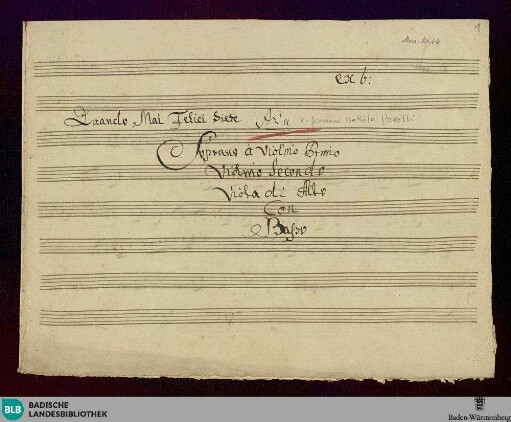 1
ex 6:
Quando Mai Felici siete Aria v. Giovanni Battista
Soprano à Violino Primo
Violino Secondo
Viola di Alto
Con
Basso
BLB BADISCHE
LANDESBIBLIOTHEK
Baden-Württemberg